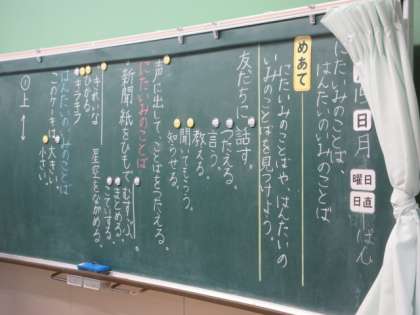 月
日
曜日
日直
にたいみのことば、
はんたいのいみのことば
めあて
にたいみのことばや、はんたいの
いみのことばを見つけよう。
友だちに話す。
つたえる。
言う。
教える。
聞いてもらう。
知らせる。
声に出して、ことばをつたえる。
にたいみのことば
新聞紙をひもでむすぶ。
まとめる。
こていする。
きれいな 星空をながめる。
ひかる
キラキラ
はんたいのいみのことば
このケーキは大きい。
小さい。
上